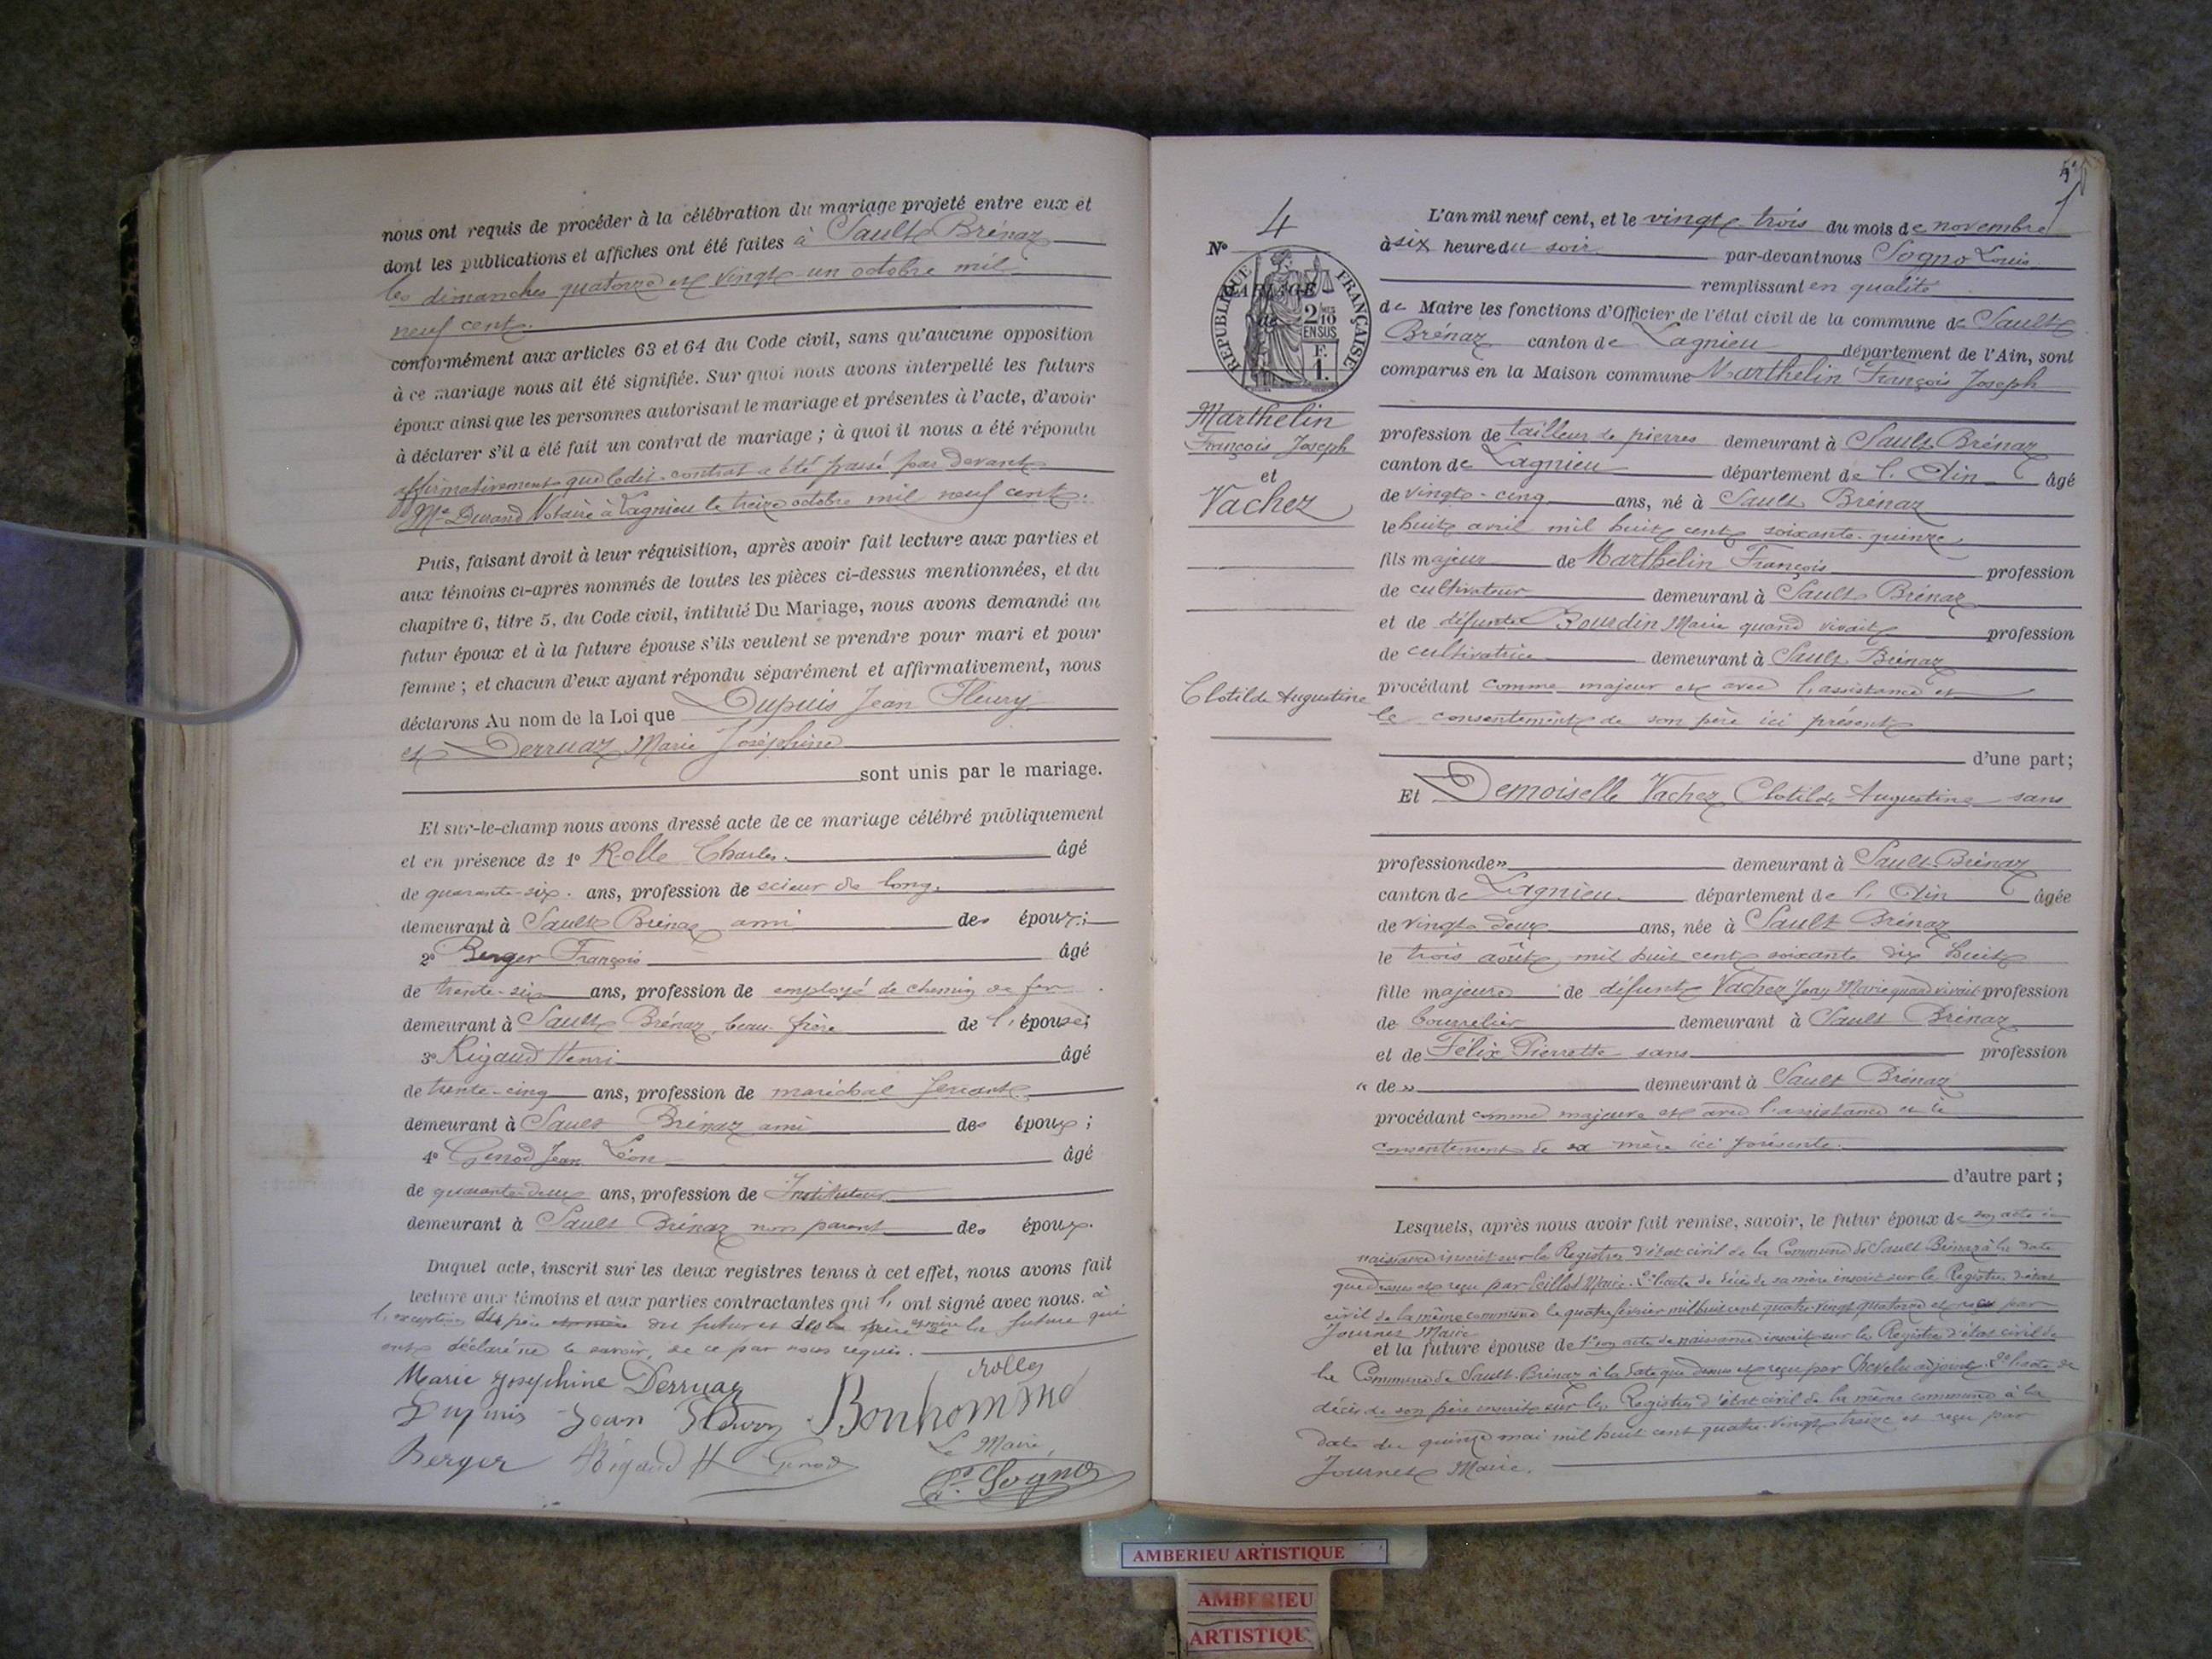 nous ont requis de procéder à la célébration du mariage projeté entre eux et
dont les publications et affiches ont été faites à Sault-Brénaz
les dimanches quatorze et vingt-un octobre mil
neuf cent.
conformément aux articles 63 et 64 du Code civil, sans qu'aucune opposition
à ce mariage nous ait été signifiée. Sur quoi nous avons interpellé les futurs
époux ainsi que les personnes autorisant le mariage et présentes à l'acte, d'avoir
à déclarer s'il a été fait un contrat de mariage ; à quoi il nous a été répondu
affirmativement que ledit contrat a été passé par devant
Me Durand Notaire à Lagnieu le treize octobre mil neuf cent.
Puis, faisant droit à leur réquisition, après avoir fait lecture aux parties et
aux témoins ci-après nommés de toutes les pièces ci-dessus mentionnées, et du
chapitre 6, titre 5, du Code civil, intitulé Du Mariage, nous avons demandé au
futur époux et à la future épouse s'ils veulent se prendre pour mari et pour
femme ; et chacun d'eux ayant répondu séparément et affirmativement, nous
déclarons Au nom de la Loi que Dupuis Jean Fleury
et Derruaz Marie Joséphine
sont unis par le mariage.
Et sur-le-champ nous avons dressé acte de ce mariage célébré publiquement
et en présence de 1° Rolle Charles. âgé
de quarante-six. ans, profession de scieur de long.
demeurant à Sault Brénaz ami des époux ;
2° Berger François âgé
de trente-six ans, profession de employé de chemin de fer
demeurant à Sault Brénaz, beau-frère de l'épouse ;
3° Rigaud Henri âgé
de trente-cinq ans, profession de maréchal ferrant
demeurant à Sault Brénaz ami des époux ;
4° Genod Jean Léon âgé
de quarante-deux ans, profession de Instituteur
demeurant à Sault Brénaz non parent des époux.
Duquel acte, inscrit sur les deux registres tenus à cet effet, nous avons fait
lecture aux témoins et aux parties contractantes qui l' ont signé avec nous. à
l'exception du père du futur et de la future qui
ont déclaré ne le savoir, de ce par nous requis.
Marie Josephine Derruaz
Rolle
Dupuis Jean Fleury Bonhomme
Berger Rigaud H Genod
Le Maire,
L. Sogno
4
N°
RÉPUBLIQUE FRANÇAISE
MARIAGE
de
2/10 EN SUS
F. 1.
Marthelin
François Joseph
et
Vachez
Clotilde Augustine
L'an mil neuf cent, et le vingt-trois du mois de novembre
à six heure du soir par-devant nous Sogno Louis
remplissant en qualité
de Maire les fonctions d'Officier de l'état civil de la commune de Sault
Brénaz canton de Lagnieu département de l'Ain, sont
comparus en la Maison commune Marthelin François Joseph
profession de tailleur de pierres demeurant à Sault Brénaz
canton de Lagnieu département de l'Ain âgé
de vingt-cinq ans, né à Sault Brénaz
le huit avril mil huit cent soixante-quinze
fils majeur de Marthelin François profession
de cultivateur demeurant à Sault Brénaz
et de défunte Bourdin Marie quand vivait profession
de cultivatrice demeurant à Sault Brénaz
procédant comme majeur et avec l'assistance et
le consentement de son père ici présent
d'une part ;
Et Demoiselle Vachez Clotilde Augustine sans
profession « de » demeurant à Sault-Brénaz
canton de Lagnieu département de l'Ain âgée
de vingt-deux ans, née à Sault Brénaz
le trois août mil huit cent soixante dix huit
fille majeure de défunt Vachez Jean Marie quand vivait profession
de bourrelier demeurant à Sault Brénaz
et de Félix Pierrette sans profession
« de » demeurant à Sault Brénaz
procédant comme majeure et avec l'assistance et le
consentement de sa mère ici présente.
d'autre part ;
Lesquels, après nous avoir fait remise, savoir, le futur époux de son acte de
naissance inscrit sur le Registre d'état civil de la Commune de Sault Brénaz à la date
que dessus et reçu par Maire. 2° l'acte de décès de sa mère inscrit sur le Registre d'état
civil de la même commune le quatre février mil huit cent quatre-vingt quatorze et reçu par
Journet Maire
et la future épouse de 1° son acte de naissance inscrit sur le Registre d'état civil de
la Commune de Sault-Brénaz à la date que dessus et reçu par Chevelu adjoint. 2° l'acte de
décès de son père inscrit sur le Registre d'état civil de la même commune à la
date du quinze mai mil huit cent quatre-vingt treize et reçu par
Journet Maire.
AMBERIEU ARTISTIQUE
AMBERIEU
ARTISTIQUE